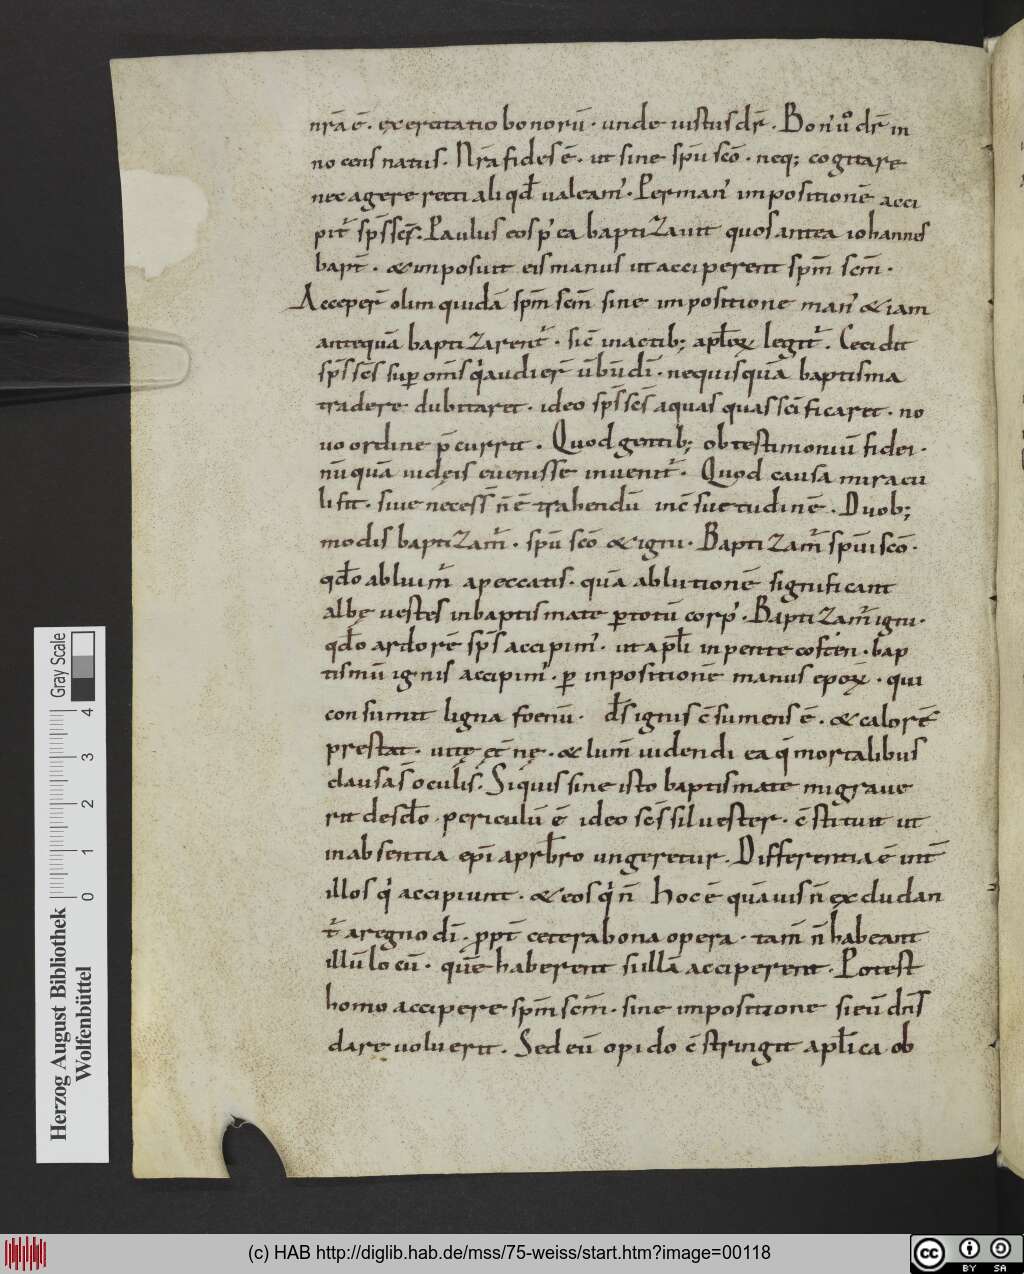 nr̄a ē · exercitatio bonorū · unde iustus dr̄ · Bon' ů dr̄ in
nocens natus · Nr̄a fides ē · ut sine sp̄u sc̄o · neq; cogitare
nec agere recti aliqd̄ valeam' · Per man' impositionē acci
pit' sp̄s sc̄s · Paulus eos p' ea baptizavit quos antea iohannes
bapt̄ · & imposuit eis manus ut acciperent sp̄m sc̄m ·
Acceper̄ olim quidā sp̄m sc̄m sine impositione man' & iam
antequā baptizarent' · sic̄ in actib; ap̄lox legit' · Cecidit
sp̄s sc̄s super om̄s q'audier̄ ūbū dī · nequisquā baptisma
tradere dubitaret · ideo sp̄s sc̄s aquas quas sc̄ificaret · no
vo ordine p̄currit · Quod gentib; ob testimoniū fidei ·
nūquā iudęis evenisse invenit' · Quod causa miracu
li fit · sive necess̄ n̄ ē trahendū in c̄suetudinē · Duob;
modis baptizam' · sp̄u sc̄o & igni · Baptizam' sp̄ui sc̄o ·
qd̄o abluim' a peccatis · quā ablutionē significant
albę vestes in baptismate p totū corp' · Baptizam' igni ·
qd̄o ardorē sp̄s accipim' · ut ap̄li in pentecosten · bap
tismū ignis accipim' · p inpositionē manus ep̄ox · qui
consumit ligna foenū · d̄s ignis c̄sumens ē · & calorē
prestat · vitę ęt̄nę · & lum̄ videndi ea q̄ mortalibus
clausa s̄ oculis · Siquis sine isto baptismate migrave
rit de sc̄lo · periculū ē ideo sc̄s silvester · c̄stituit ut
in absentia ep̄i a prb̄ro ungeretur · Differentia ē int̄
illos q' accipiunt · & eos q' n̄ Hoc ē quāvis n̄ excludan
t' a regno dī · ppt̄ cetera bona opera · tam̄ n̄ habeant
illū locū · quē haberent si illā acciperent · Potest
homo accipere sp̄m sc̄m · sine impositione si eū dn̄s
dare voluerit · Sed eū opido c̄stringit ap̄lica ob
Gray Scale
4
3
2
1
0
Herzog August Bibliothek
Wolfenbüttel
(c) HAB http://diglib.hab.de/mss/75-weiss/start.htm?image=00118
cc BY SA